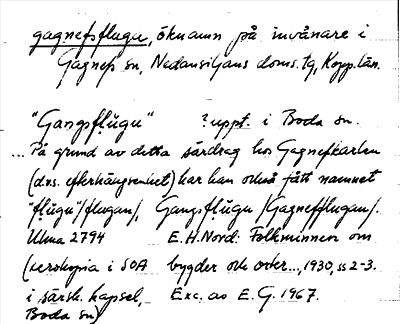 gagnefsflugu, öknamn på invånare i
Gagnefs sn, Nedansiljans doms. tg, Kopp. län.
"Gangsflugu" ?uppt. i Boda sn.
På grund av detta särdrag hos Gagnefkarlen
(dvs. efterhängsenhet) har han också fått namnet
"flugu"/flugan/, Gangsflugu /Gagnefflugan/.
Ulma 2794 E.H.Nord: Folkminnen om
(xerokopia i SOA bygder och orter..., 1930, ss 2-3.
i särsk. kapsel, Exc. av E. G. 1967.
Boda sn)